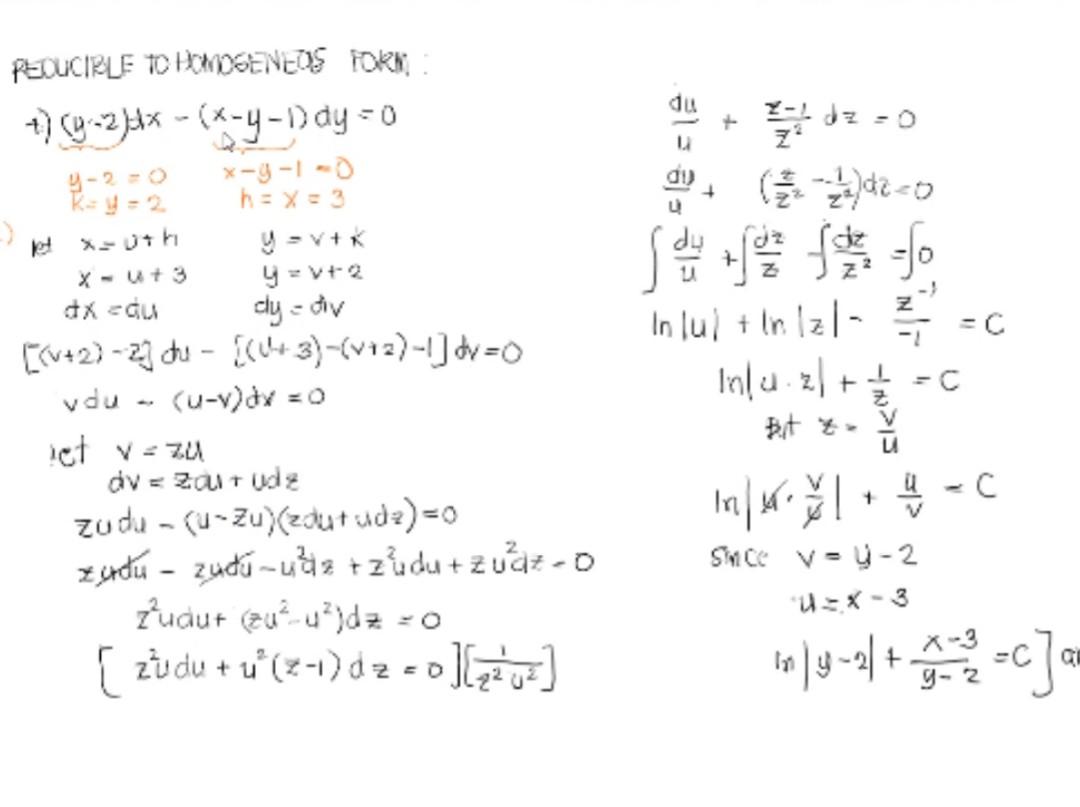 REDUCIBLE TO HOMOGENEOUS FORM :
1) (y-2)dx - (x-y-1) dy = 0
y-2 = 0 x-y-1 = 0
k = y = 2 h = x = 3
let x = u+h y = v+k
x = u+3 y = v+2
dx = du dy = dv
[(v+2)-2] du - [(u+3)-(v+2)-1] dv = 0
vdu - (u-v)dv = 0
let v = zu
dv = zdu + udz
zudu - (u-zu)(zdu+udz) = 0
zudu - zudu - u²dz + z²udu + zu²dz = 0
z²udu + (zu²-u²)dz = 0
[ z²udu + u²(z-1) dz = 0 ][1/z²u²]
du/u + z-1/z² dz = 0
du/u + (z/z² - 1/z²)dz = 0
∫ du/u + ∫ dz/z - ∫ dz/z² = ∫0
ln|u| + ln|z| - z⁻¹/-1 = C
ln|u·z| + 1/z = C
But z = v/u
ln|u·v/u| + u/v = C
since v = y-2
u = x-3
ln|y-2| + x-3/y-2 = C ]